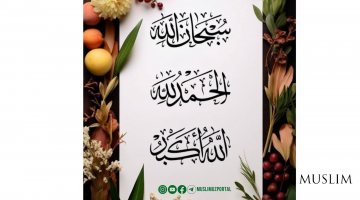 سُبْحَانَ اللّٰه
الْحَمْدُ لِلّٰه
اللّٰهُ أَكْبَر
MUSLIMIZPORTAL
MUSLIM